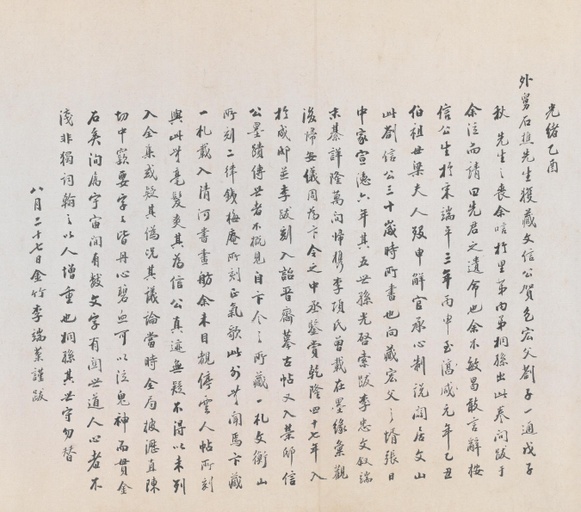 光緒乙酉
外舅石樵先生獲藏文信公賀包宏父劄子一通戊子
秋先生之喪余唁於里第內弟桐孫出此卷問跋于
余泣而請曰先君之遺命也余不敏曷敢言辭按
信公生於宋端平三年丙申至德祐元年乙丑
伯祖世梁夫人歿申解官承心制說閒居文山
此劄信公三十歲時所書也向藏宏父之壻張日
中家宣德六年其五世孫光啓索跋李忠文叙端
末綦詳隆萬間歸檇李項氏曾載在墨緣彙觀
後歸安儀周為卞令之中丞鑒賞乾隆四十七年入
於成邸並李跋刻入詒晉齋摹古帖又入榮邸信
公墨蹟傳世者不概見自卞令之所藏一札文衡山
所刻二律錢梅庵所刻正氣歌此外嘗聞馬卞藏
一札載入清河書畫舫余未目覩停雲人帖所刻
與此毫髮爽其為信公真迹無疑不得以未列
入全集或疑其偽況其議論當時全局披瀝直陳
切中竅要字字皆丹心碧血可以泣鬼神而貫金
石矣洵為宇宙間有數文字有關世道人心者不
淺非獨詞翰之以人增重也桐孫其世守勿替
八月二十七日金竹李端棻謹跋